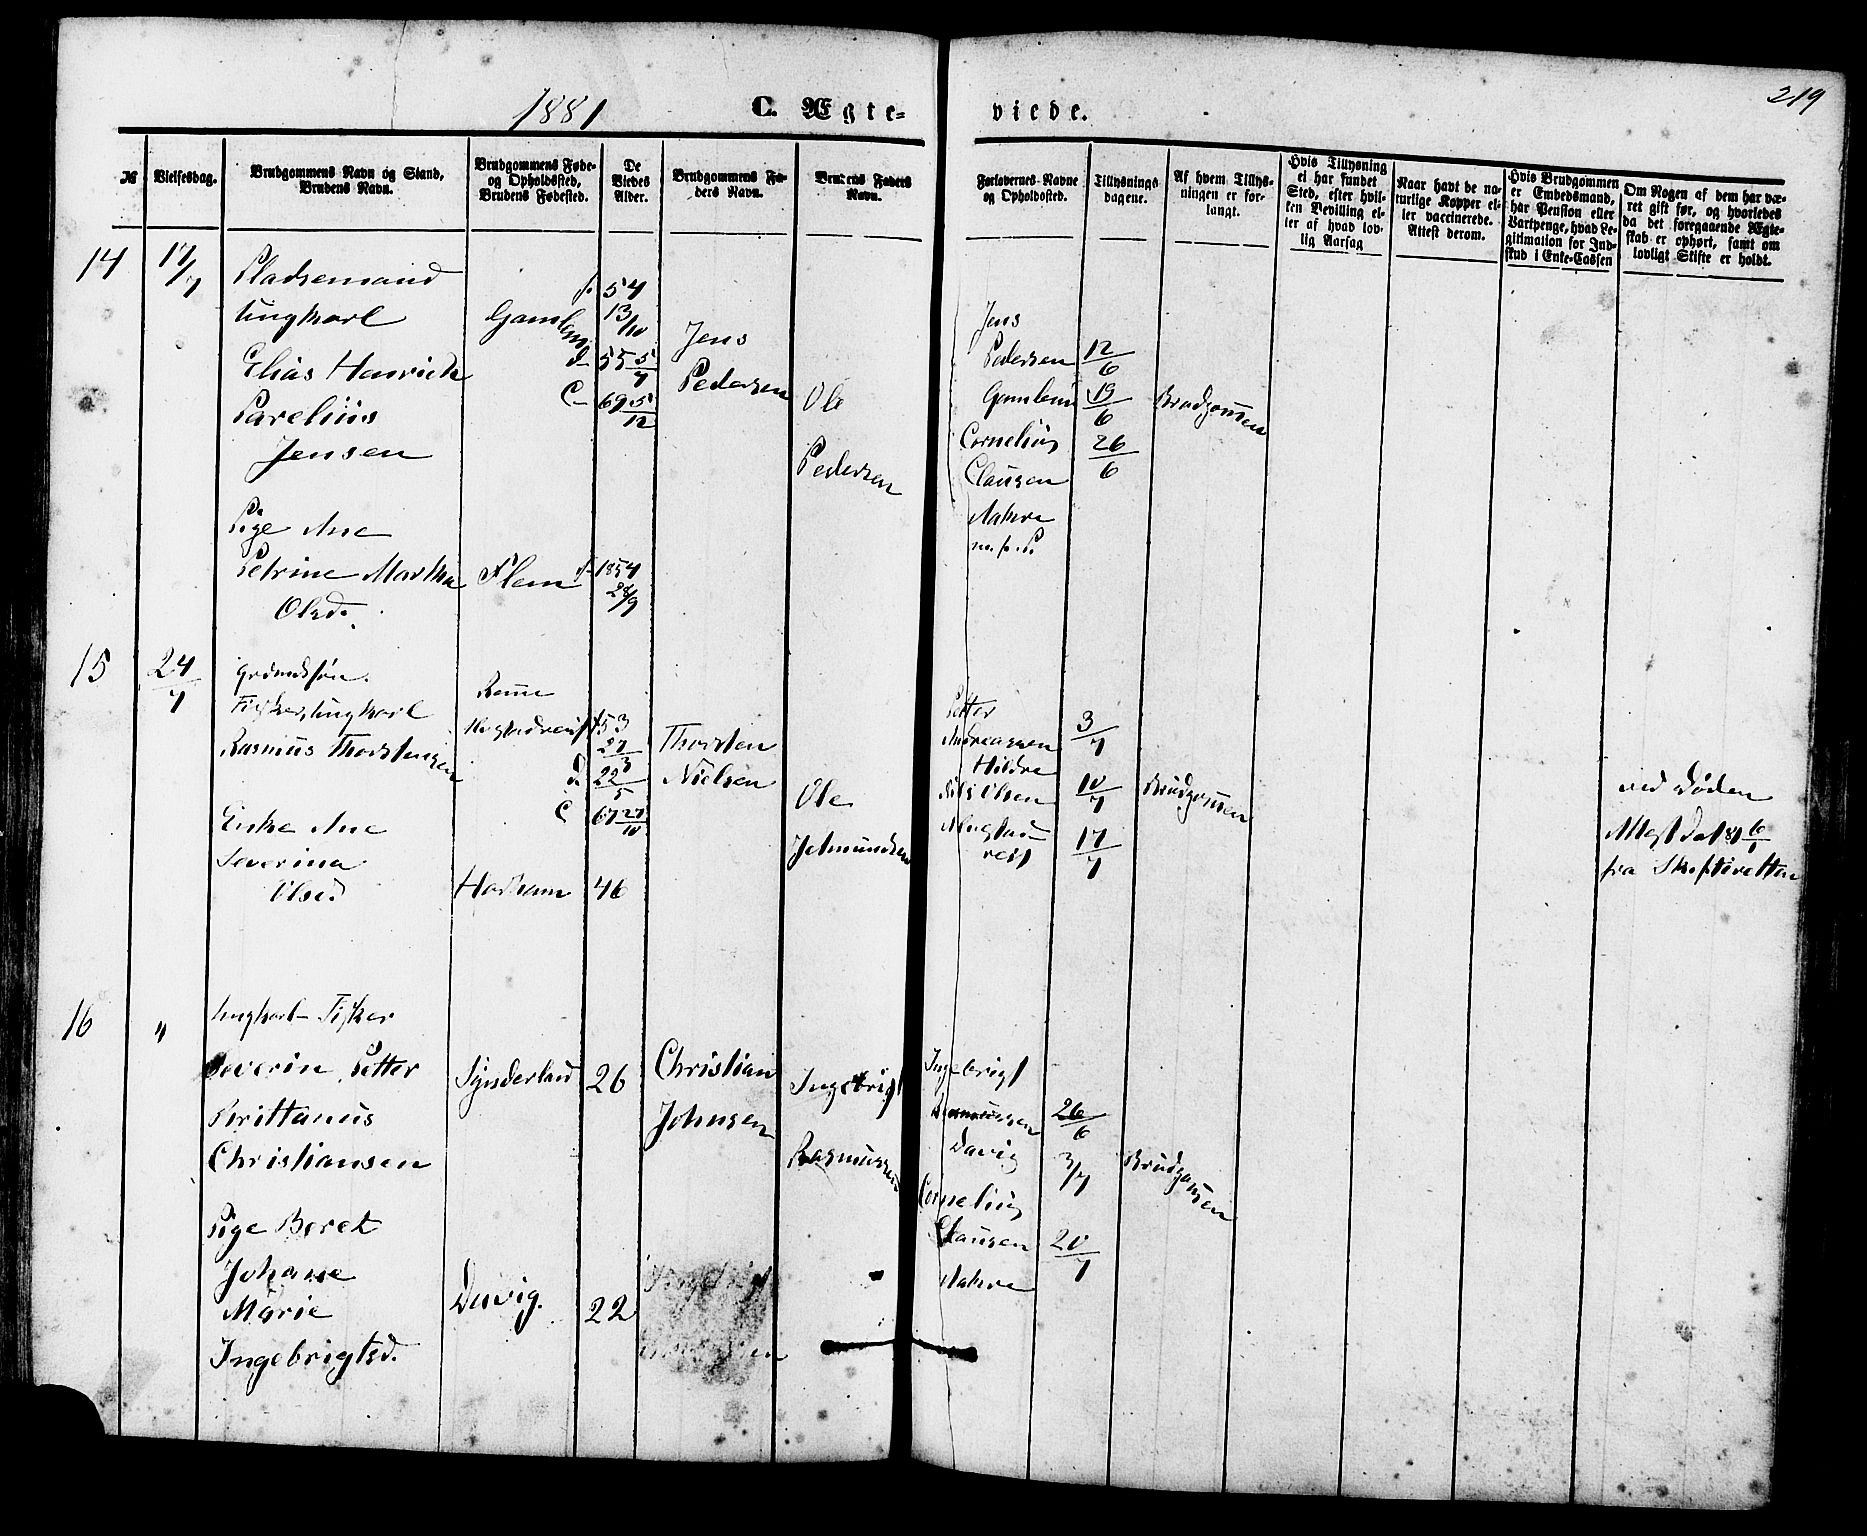 1881
C. Ægte-
viede.
219
№
Vielsesdag.
Brudgommens Navn og Stand,
Brudens Navn.
Brudgommens Føde-
og Opholdssted,
Brudens Fødested.
De
Viedes
Alder.
Brudgommens Fa-
ders Navn.
Brudens Faders
Navn.
Forlovernes Navne
og Opholdssted.
Tillysnings
dagene.
Af hvem Tillys-
ningen er for-
langt.
Hvis Tillysning
ei har fundet
Sted, efter hvil-
ken Bevilling el-
ler af hvad lov-
lig Aarsag
Naar havt de na-
turlige Kopper el-
ler vaccinerede.
Attest derom.
Hvis Brudgommen
er Embedsmand,
har Pension eller
Vartpenge, hvad Le-
gitimation for Ind-
skud i Enke-Cassen
Om Nogen af dem har væ-
ret gift før, og hvorledes
da det foregaaende Ægte-
skab er ophørt, samt om
lovligt Skifte er holdt.
14
17/7
Pladsemand
Ungkarl
Elias Henrick
Parelius
Jensen
Gamlem
f. 54
13/10
d. 55 5/7
C. 69 5/12
Jens
Pedersen
Ole
Pedersen
Jens
Pedersen
Gamlem
Cornelius
Clausen
12/6
19/6
26/6
Brudgommen
Pige Ane
Petrine Martha
Olsd.
Flem
f. 1854
28/9
15
24/7
Fisker, Ungkarl
Rasmus Thorstensen
53
27/3
d. 22/5
C 67 27/10
Thorsten
Nielsen
Ole
Petter
Andreassen
Hildre
Nils Olsen
3/7
10/7
17/7
Brudgommen
ved Døden
Attest dat 81 6/1
fra Skifteretten
Enke Ane
Severina
Olsd
Harham
46
16
"
Ungkarl Fisker
Severin Petter
Brittanus
Christiansen
Synderland
26
Christian
Johnsen
Ingebrigt
Rasmussen
Ingebrigt
Rasmussen
Davig
Cornelius
Clausen
26/6
3/7
20/7
Brudgommen
Pige Beret
Johane
Marie
Ingebrigtsd.
Davig.
22